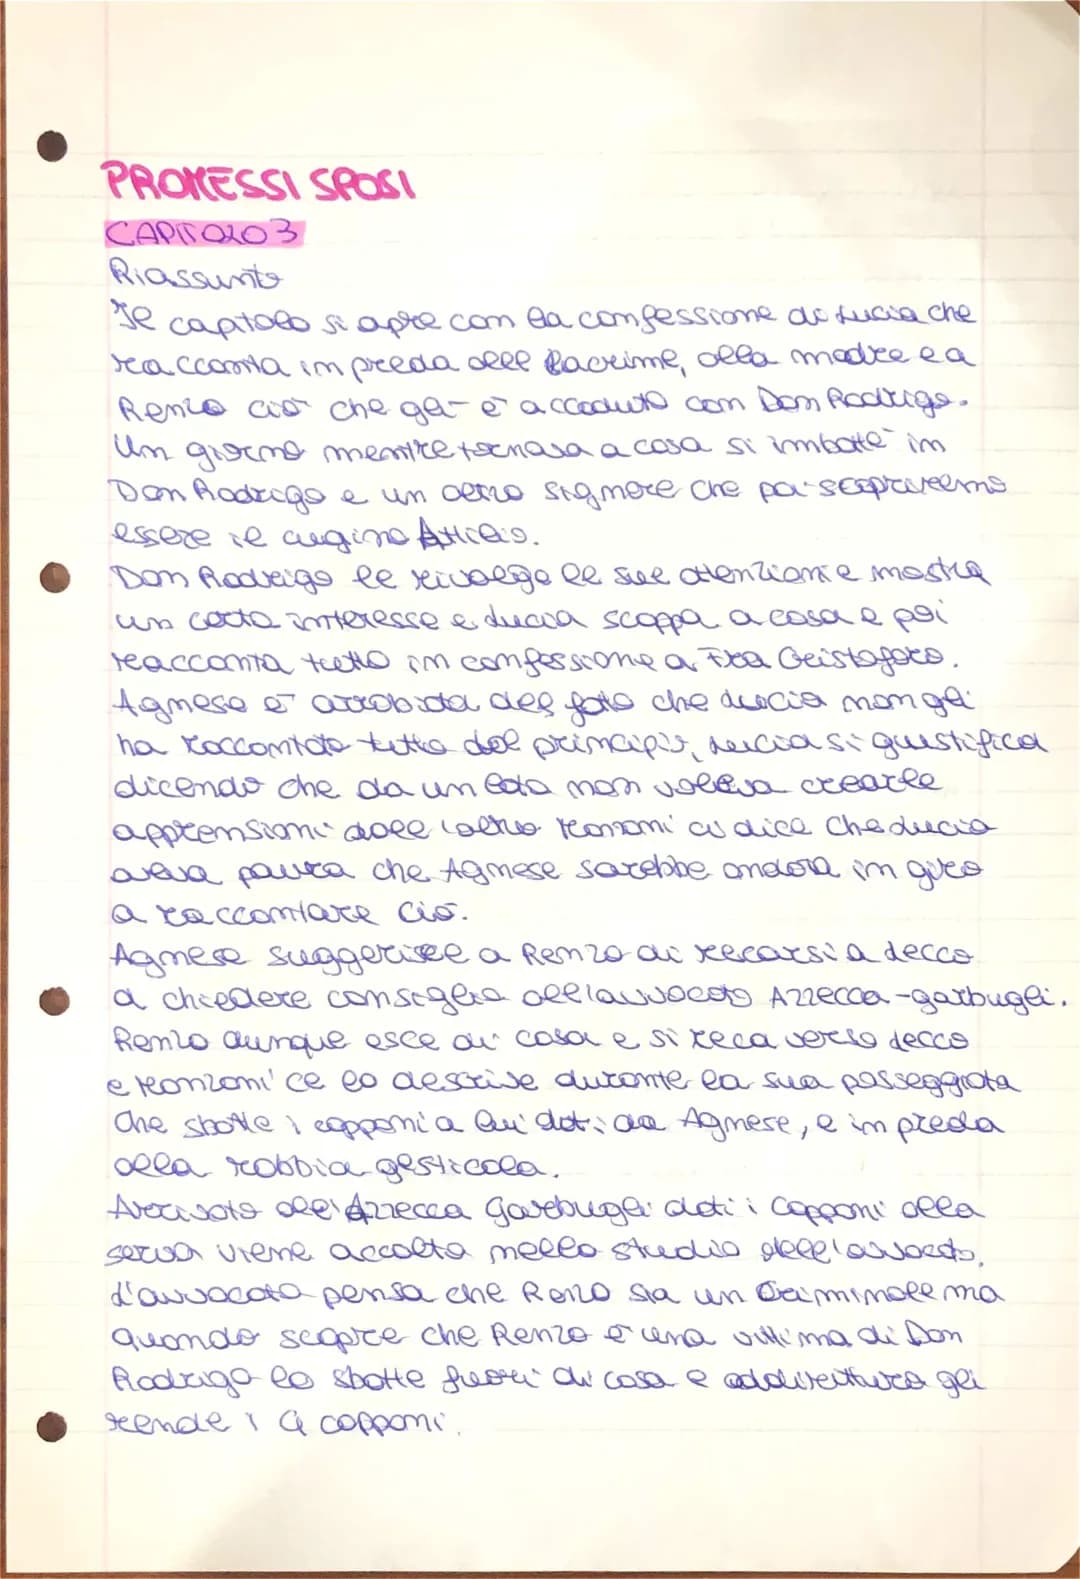 PROMESSI SPOSI
CAPITOLO 3
Riassunto
Il capitolo si apre con la confessione di Lucia che
racconta in preda alle lacrime, alla madre e a
Renzo ciò che gli è accaduto con Don Rodrigo.
Un giorno mentre tornava a casa si imbatté in
Don Rodrigo e un altro signore che poi scopriremo
essere il cugino Attilio.
Don Rodrigo le rivolge le sue attenzioni e mostra
un certo interesse e Lucia scappa a casa e poi
racconta tutto in confessione a Fra Cristoforo.
Agnese è arrabbiata del fatto che Lucia non gli
ha raccontato tutto dal principio, Lucia si giustifica
dicendo che da un lato non voleva crearle
apprensioni dall'altro Manzoni ci dice che Lucia
aveva paura che Agnese sarebbe andata in giro
a raccontare ciò.
Agnese suggerisce a Renzo di recarsi a Lecco
a chiedere consiglio all'avvocato Azzecca-garbugli.
Renzo dunque esce di casa e si reca verso Lecco
e Manzoni ce lo descrive durante la sua passeggiata
che sbatte i capponi a lui dati da Agnese, e in preda
alla rabbia gesticola.
Arrivato all'Azzecca Garbugli dati i capponi alla
serva viene accolto nello studio dell'avvocato.
L'avvocato pensa che Renzo sia un criminale ma
quando scopre che Renzo è una vittima di Don
Rodrigo lo sbatte fuori di casa e addirittura gli
rende i 4 capponi.